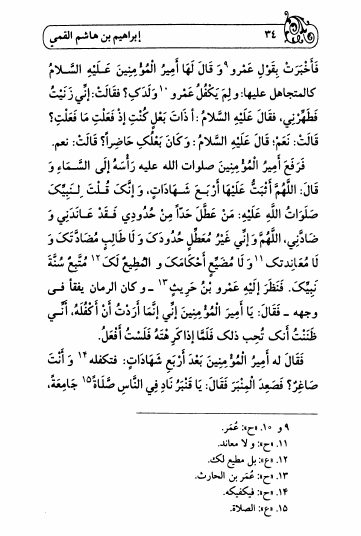 ٣٤ إبراهيم بن هاشم القمي
فَأَخْبَرَتْ بِقَوْلِ عَمرو٩ وَ قَالَ لَهَا أَمِيرُ الْمُؤْمِنِينَ عَلَيْهِ السَّلامُ
كالمتجاهل عليها: و لِمَ يَكْفُلُ عَمرو١٠ وَلَدَكِ؟ فقالَتْ: إنِّي زَنَيْتُ
فَطَهِّرْنِي، فقالَ عَلَيْهِ السَّلامُ: أ ذَاتَ بَعْلٍ كُنْتِ إِذْ فَعَلْتِ مَا فَعَلْتِ؟
قالَتْ: نَعَمْ؛ قالَ عَلَيْهِ السَّلامُ: وَ كَانَ بَعْلُكِ حَاضِراً؟ قَالَتْ: نعم.
فَرَفَعَ أَمِيرُ الْمُؤْمِنِينَ صلوات الله عليه رَأْسَهُ إِلَى السَّمَاءِ وَ
قَالَ: اللَّهُمَّ أَثْبَتُّ عَلَيْهَا أَرْبَعَ شَهَادَاتٍ، وَ إِنَّكَ قُلْتَ لِنَبِيِّكَ
صَلَوَاتُ اللَّهِ عَلَيْهِ: مَنْ عَطَّلَ حَدّاً مِنْ حُدُودِي فَقَدْ عَانَدَنِي وَ
ضَادَّنِي، اللَّهُمَّ وَ إِنِّي غَيْرُ مُعَطِّلٍ حُدُودَكَ وَ لَا طَالِبٍ مُضَادَّتَكَ وَ
لَا مُعَانِدتك١١ وَ لَا مُضَيِّعٍ أَحْكَامَكَ و المُطِيعُ لَكَ١٢ مُتَّبِعٌ سُنَّةَ
نَبِيِّكَ. فَنَظَرَ إِلَيْهِ عَمرو بْنُ حَرِيثٍ١٣ ـ و كان الرمان يفقأ في
وجهه ـ فَقَالَ: يَا أَمِيرَ الْمُؤْمِنِينَ إِنِّي إِنَّمَا أَرَدْتُ أَنْ أَكْفُلَهُ، أَنِّي
ظَنَنْتُ أنك تُحِب ذلك فَلَمَّا إِذا كَرِهْتَهُ فَلَسْتُ أَفْعَلُ.
فَقَالَ له أَمِيرُ الْمُؤْمِنِينَ بَعْدَ أَرْبَعِ شَهَادَاتٍ: فتكفله١٤ وَ أَنْتَ
صَاغِرٌ؟ فَصَعِدَ الْمِنْبَرَ فَقَالَ: يَا قَنْبَرُ نَادِ فِي النَّاسِ صَلَاةً١٥ جَامِعَةً،
٩ و ١٠. «ح»: عُمَر.
١١. «ح»: و لا معاند.
١٢. «ع»: بل مطيع لك.
١٣. «ح»: عُمَر بن الحارث.
١٤. «ح»: فيكفيكه.
١٥. «ع»: الصلاة.